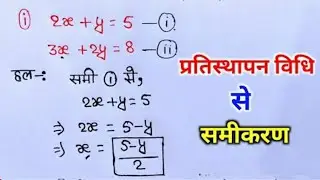 (i) 2x + y = 5 — (i)
3x + 2y = 8 — (ii)
हल-: समी (i) से,
2x + y = 5
⇒ 2x = 5 - y
⇒ x = 5-y/2
प्रतिस्थापन विधि
से
समीकरण